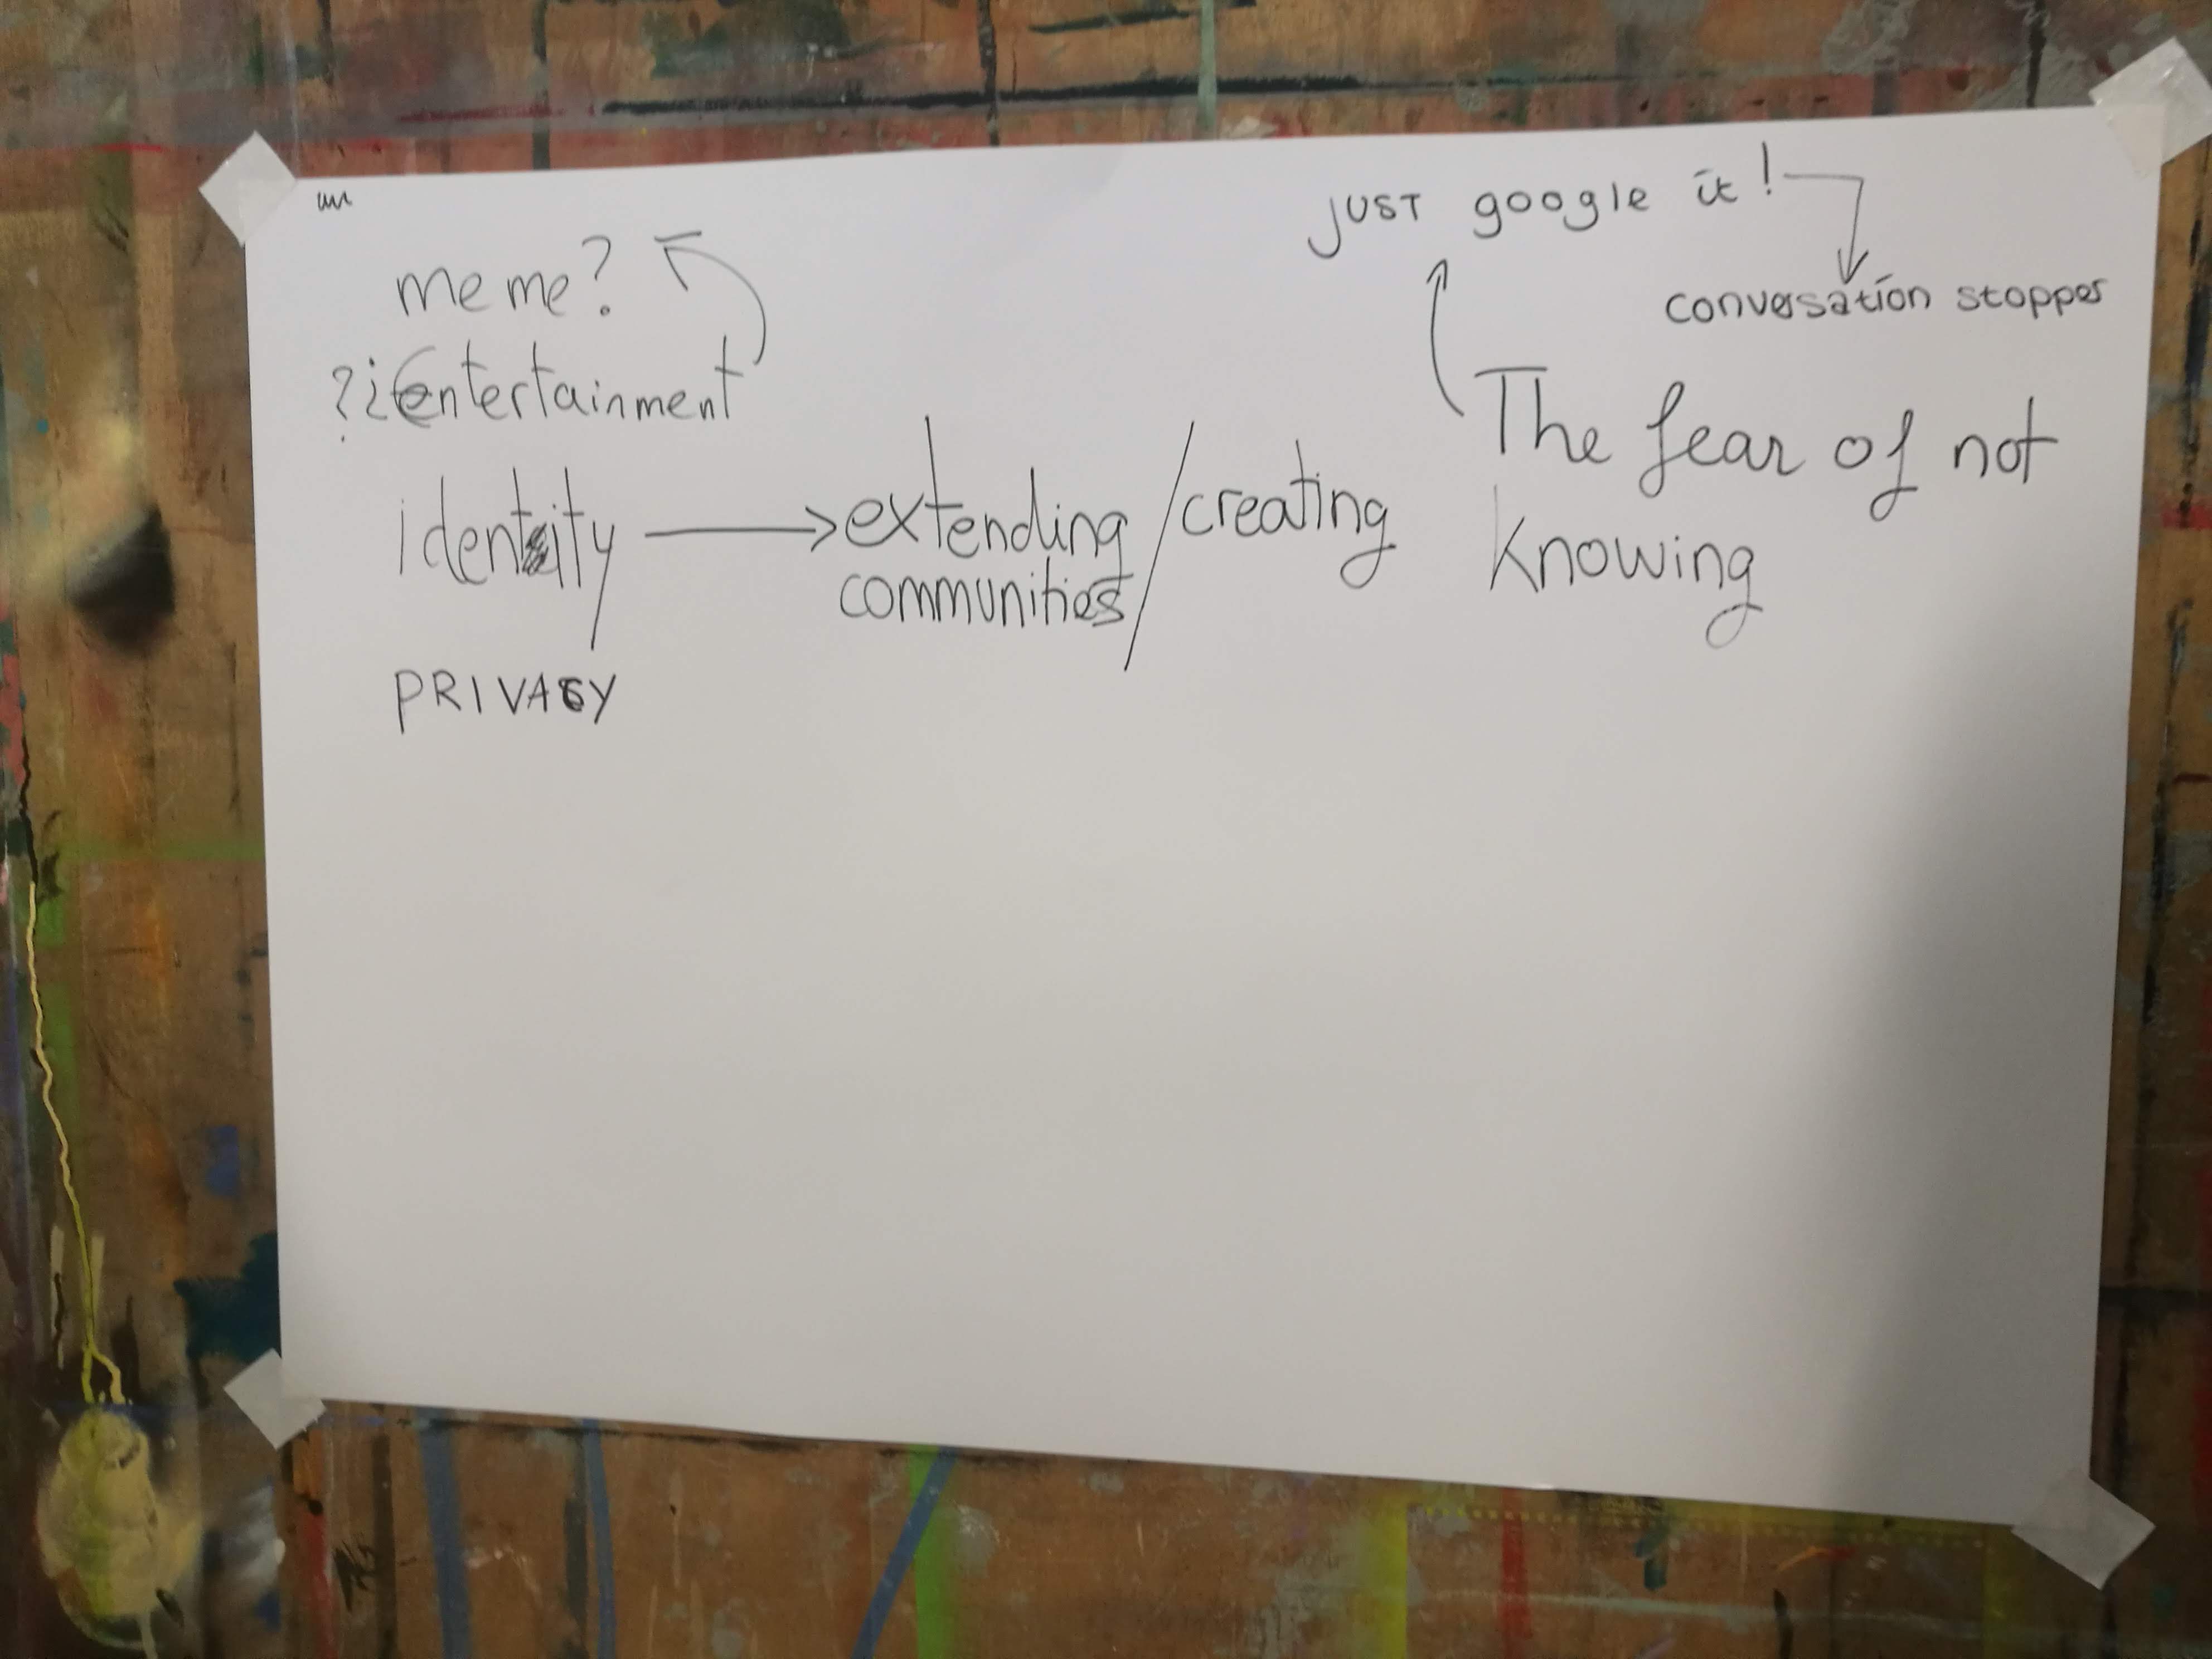 meme?
?¿entertainment
identity → extending / creating
communities
PRIVACY
JUST google it!
conversation stopper
The fear of not
knowing